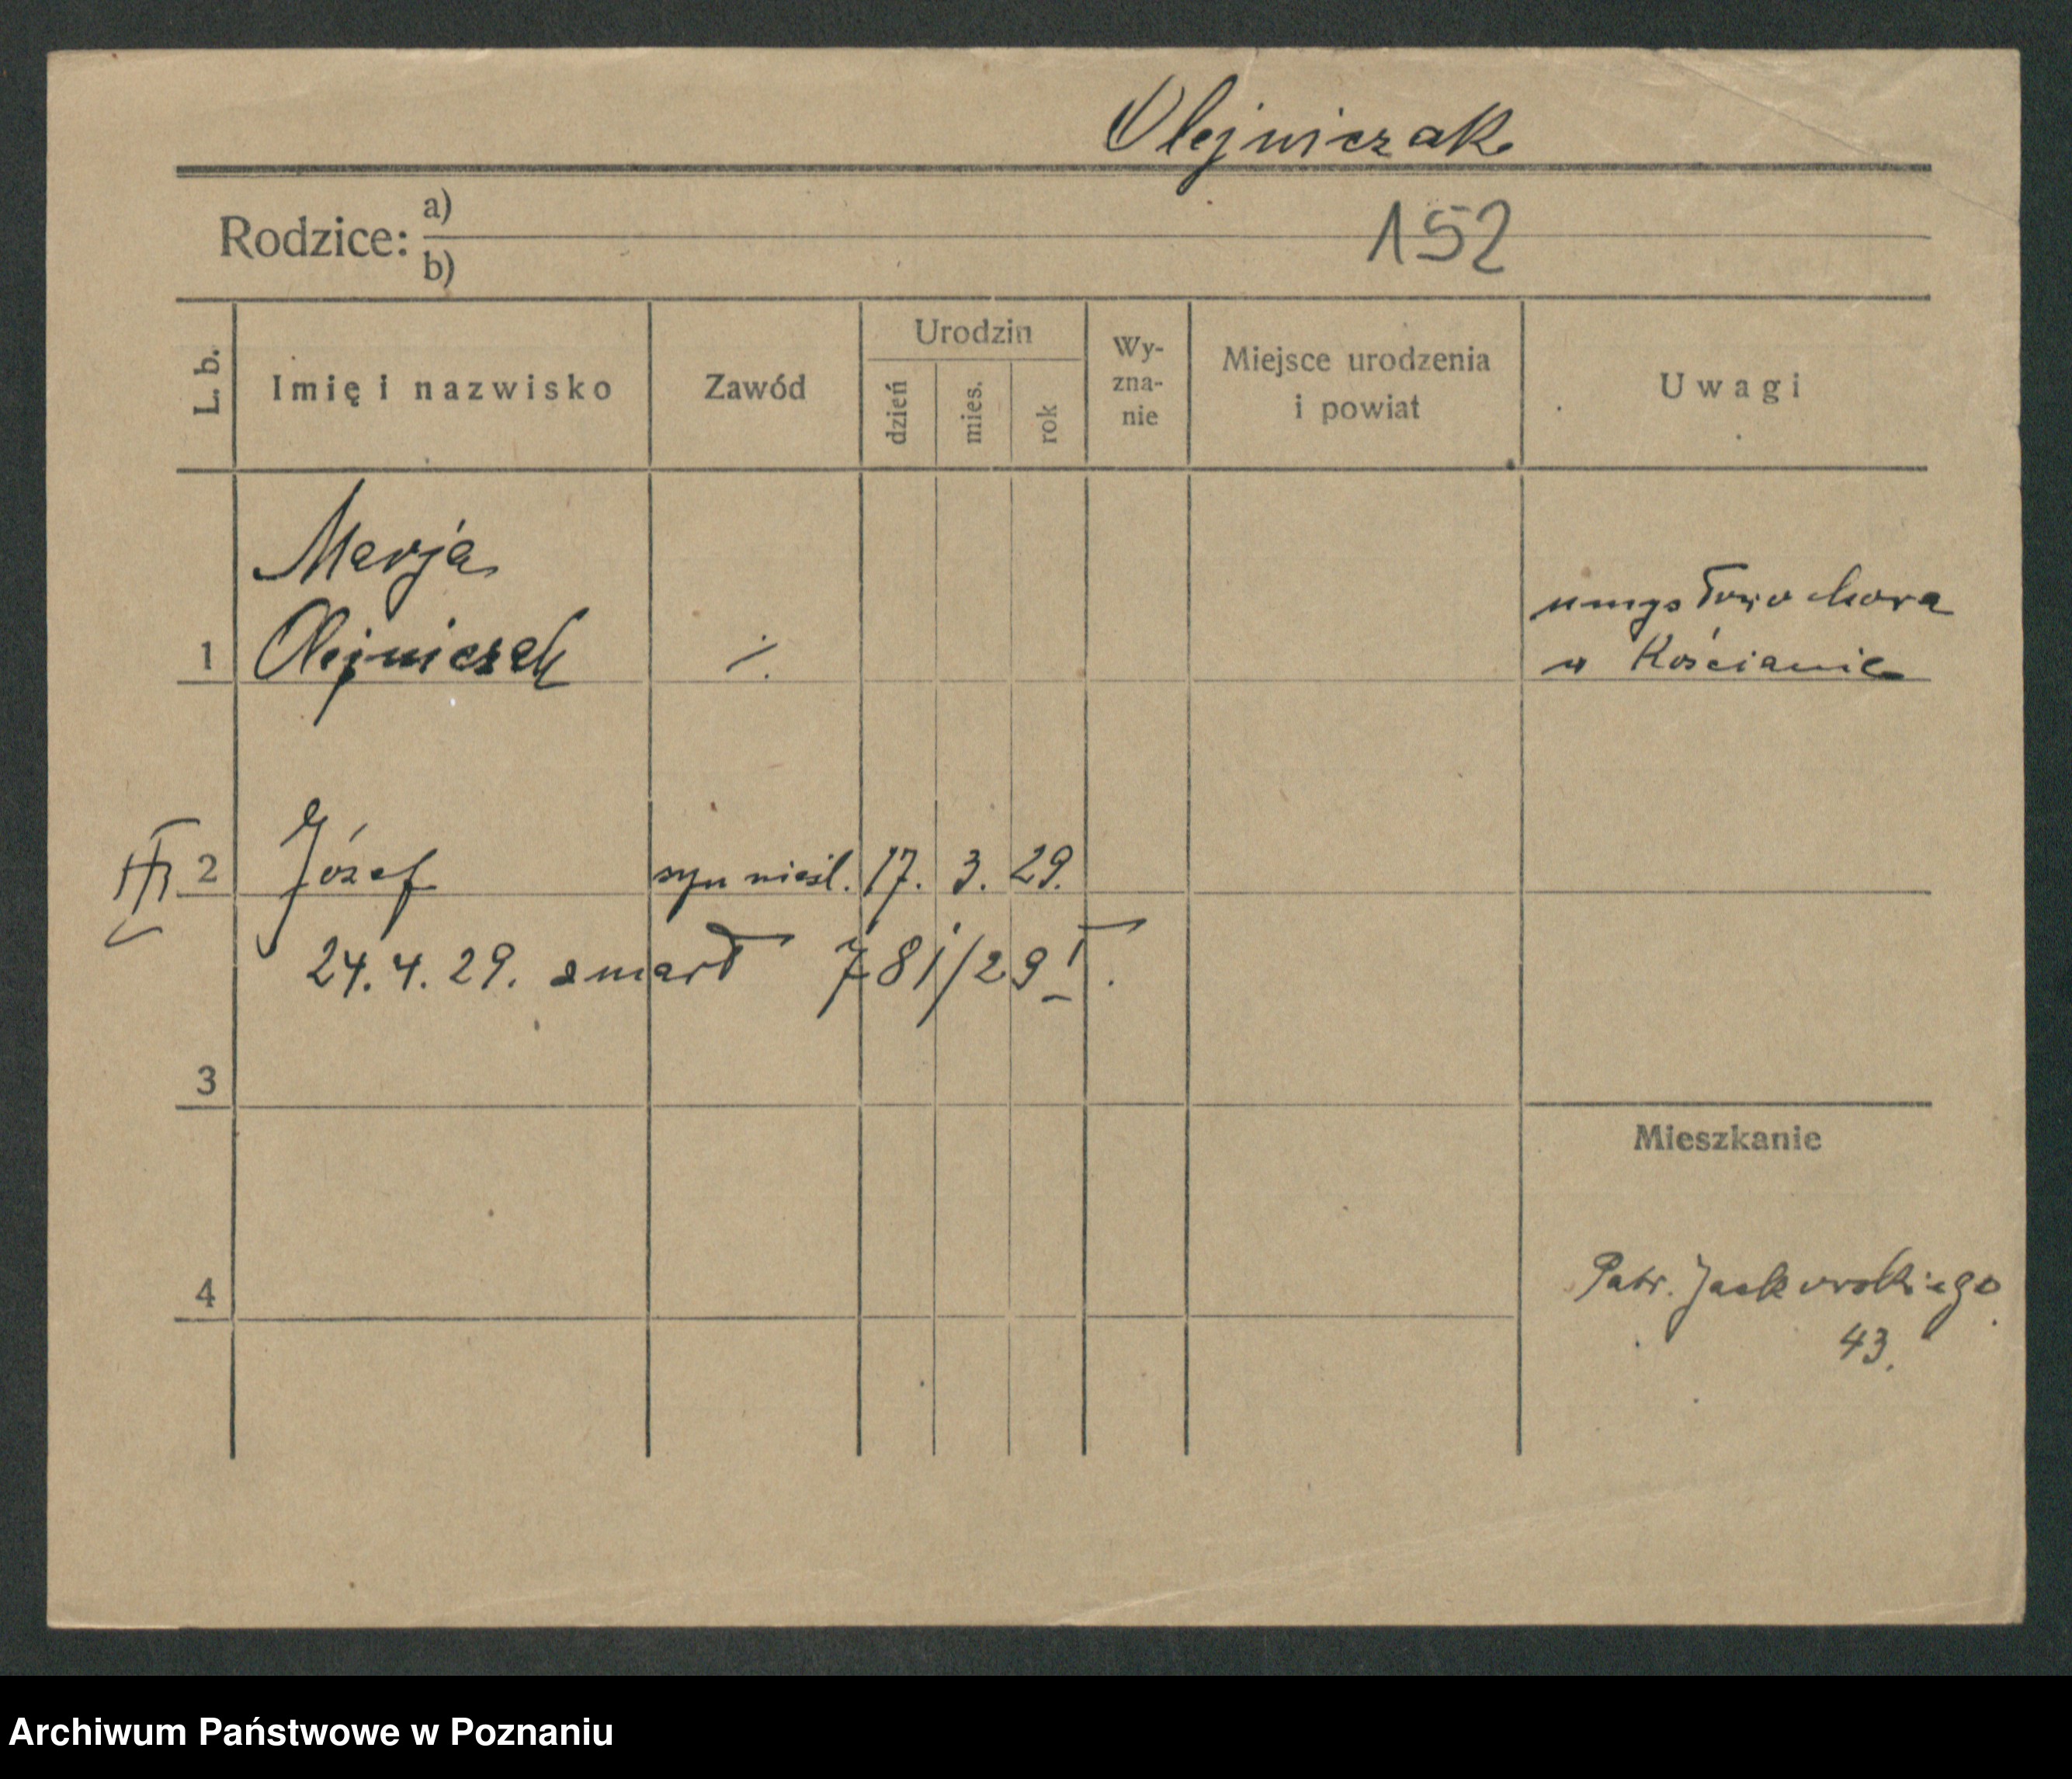 Olejniczak
Rodzice: a)
b)
152
L. b.
Imię i nazwisko
Zawód
Urodzin
dzień
mies.
rok
Wy-
zna-
nie
Miejsce urodzenia
i powiat
Uwagi
Marja
1 Olejniczak ./.
umysłowo chora
w Kościanie
2 Józef syn nieśl. 17. 3. 29.
24.4.29. zmarł 781/29 I.
3
Mieszkanie
4
Patr. Jackowskiego
43.
Archiwum Państwowe w Poznaniu